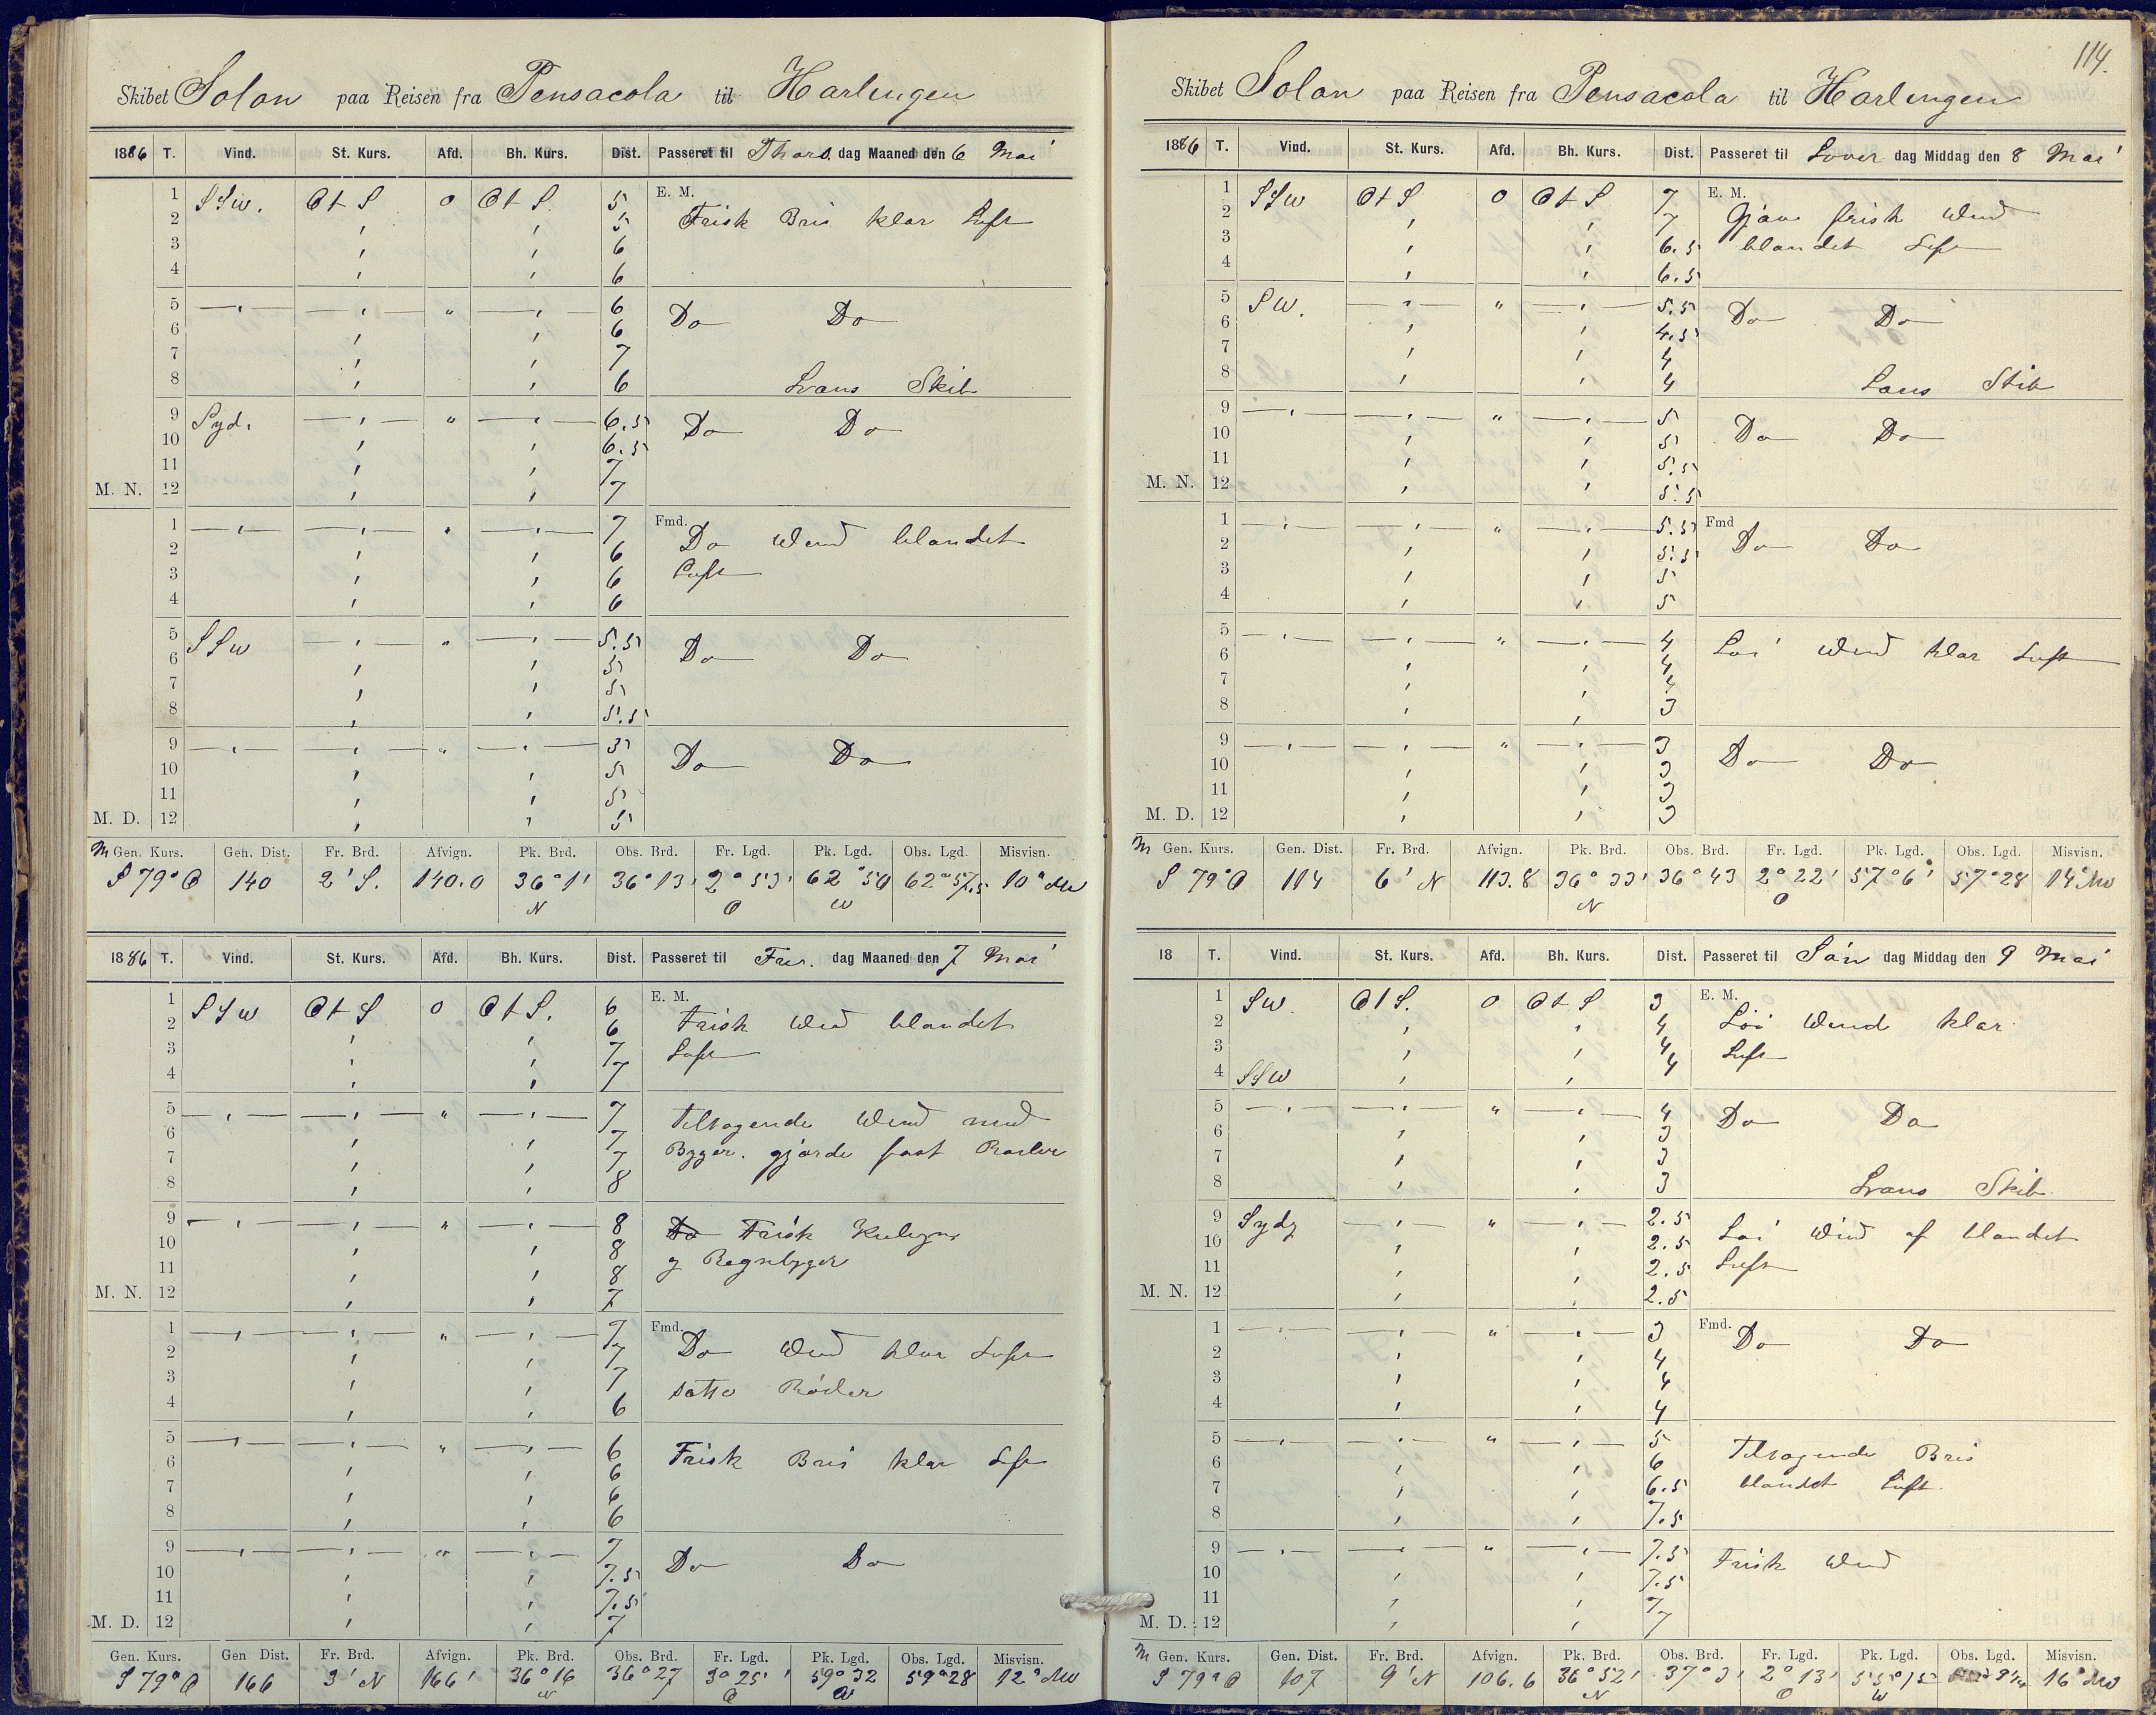 Skibet Solon paa Reisen fra Pensacola til Harlingen
1886 T. Vind. St. Kurs. Afd. Bh. Kurs. Dist. Passeret til Thors dag Maaned den 6 Mai
1 SSW. O t S 0 O t S 5 E. M.
2 , , 5 Frisk Bris klar Luft
3 , , 6
4 , , 6
5 —,— —,— " —,— 6 Do Do
6 , , 6
7 , , 7
8 , , 6 Læns Skib
9 Syd. —,— " —,— 6.5 Do Do
10 , , 6.5
11 , , 7
M. N. 12 , , 7
1 —,— —,— " —,— 7 Fmd. Do Wind blandet
2 , , 6
3 , , 6 Luft
4 , , 6
5 SSW —,— " —,— 5.5 Do Do
6 , , 5
7 , , 5
8 , , 5.5
9 —,— —,— " —,— 5 Do Do
10 , , 5
11 , , 5
M. D. 12 , , 5
M Gen. Kurs. Gen. Dist. Fr. Brd. Afvign. Pk. Brd. Obs. Brd. Fr. Lgd. Pk. Lgd. Obs. Lgd. Misvisn.
S 79° O 140 2' S. 140.0 36° 1' N 36° 13' 2° 53' O 62° 50 W 62° 57.5 10° NW
1886 T. Vind. St. Kurs. Afd. Bh. Kurs. Dist. Passeret til Fre. dag Maaned den 7 Mai
1 SSW O t S 0 O t S. 6 E. M.
2 , , 6 Frisk Wind blandet
3 , , 7 Luft
4 , , 7
5 —,— —,— " —,— 7 Tiltagende Wind med
6 , , 7
7 , , 7 Byger. gjørde fast Røiler
8 , , 8
9 —,— —,— " —,— 8 Do Frisk Kuling
10 , , 8
11 , , 8 og Regnbyger
M. N. 12 , , 7
1 —,— —,— " —,— 7 Fmd. Do Wind klar Luft
2 , , 7
3 , , 7 satte Røiler
4 , , 6
5 —,— —,— " —,— 6 Frisk Bris klar Luft
6 , , 6
7 , , 6
8 , , 6
9 —,— —,— " —,— 7 Do Do
10 , , 7.5
11 , , 7.5
M. D. 12 , , 7
Gen. Kurs. Gen Dist. Fr. Brd. Afvign. Pk. Brd. Obs. Brd. Fr. Lgd. Pk. Lgd. Obs. Lgd. Misvisn.
S 79° O 166 3' N 166' 36° 16 N 36° 27 3° 25' O 59° 32 W 59° 28 12° NW
114.
Skibet Solon paa Reisen fra Pensacola til Harlingen
1886 T. Vind. St. Kurs. Afd. Bh. Kurs. Dist. Passeret til Løver dag Middag den 8 Mai
1 SSW O t S 0 O t S 7 E. M.
2 , , 7 Gjæv frisk Wind
3 , , 6.5 blandet Luft
4 , , 6.5
5 SW. —,— " —,— 5.5 Do Do
6 , , 4.5
7 , , 4
8 , , 4 Læns Skib
9 —,— —,— " —,— 5 Do Do
10 , , 5
11 , , 5.5
M. N. 12 , , 5.5
1 —,— —,— " —,— 5.5 Fmd Do Do
2 , , 5.5
3 , , 5
4 , , 5
5 —,— —,— " —,— 4 Løi Wind klar Luft
6 , , 4
7 , , 4
8 , , 3
9 —,— —,— " —,— 3 Do Do
10 , , 3
11 , , 3
M. D. 12 , , 3
M Gen. Kurs. Gen. Dist. Fr. Brd. Afvign. Pk. Brd. Obs. Brd. Fr. Lgd. Pk. Lgd. Obs. Lgd. Misvisn.
S 79° O 114 6' N 113.8 36° 33' N 36° 43 2° 22' O 57° 6' 57° 28 14° NW
18 T. Vind. St. Kurs. Afd. Bh. Kurs. Dist. Passeret til Søn dag Middag den 9 Mai
1 SW. O t S. 0 O t S 3 E. M.
2 , , 4 Løi Wind klar
3 , , 4 Luft
4 SSW , , 4
5 —,— —,— " —,— 4 Do Do
6 , , 3
7 , , 3
8 , , 3 Læns Skib
9 Sydg —,— " —,— 2.5 Løi Wind af blandet
10 , , 2.5
11 , , 2.5 Luft
M. N. 12 , , 2.5
1 —,— —,— " —,— 3 Fmd. Do Do
2 , , 4
3 , , 4
4 , , 4
5 —,— —,— " —,— 5 Tiltagende Bris
6 , , 6
7 , , 6.5 blandet Luft
8 , , 7.5
9 —,— —,— " —,— 7.5 Frisk Wind
10 , , 7.5
11 , , 7
M. D. 12 , , 7
M Gen. Kurs. Gen. Dist. Fr. Brd. Afvign. Pk. Brd. Obs. Brd. Fr. Lgd. Pk. Lgd. Obs. Lgd. Misvisn.
S 79° O 107 9' N 106.6 36° 52' N 37° 3' 2° 13' O 55° 15 W 16° NW